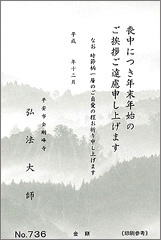 喪中につき年末年始の
ご挨拶ご遠慮申し上げます
なお 時節柄一層のご自愛の程お祈り申し上げます
平成　年十二月
平安市金剛峰寺
弘法大師
No.736
金額
(印刷参考)